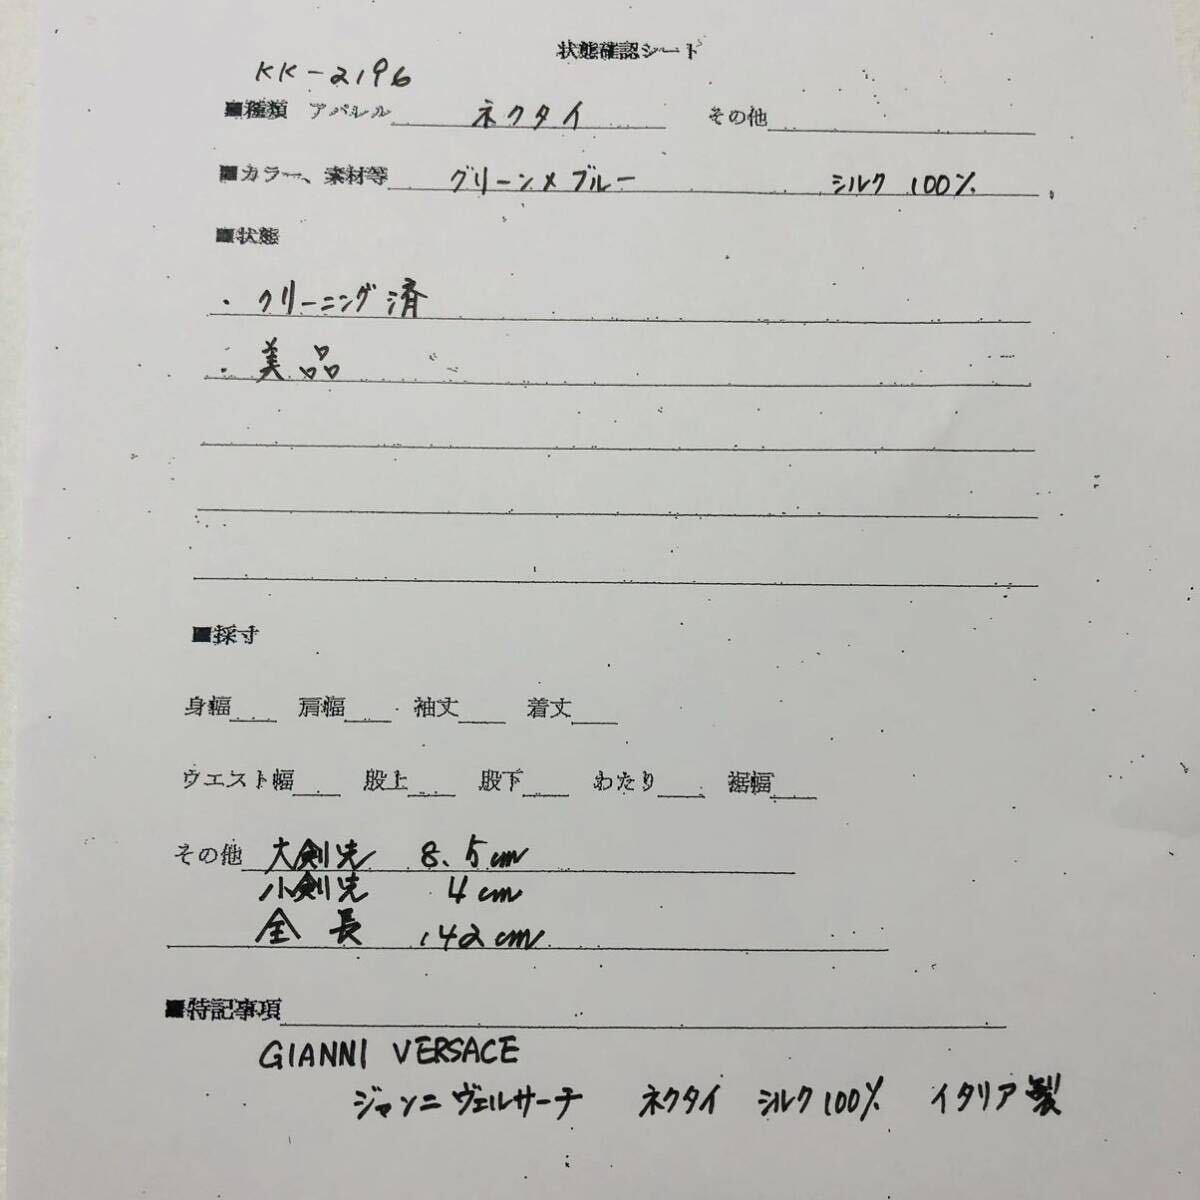 状態確認シート
KK-2196
■種類 アパレル ネクタイ その他
■カラー、素材等 グリーン×ブルー シルク 100%
■状態
・クリーニング済
・美品
■採寸
身幅 肩幅 袖丈 着丈
ウエスト幅 股上 股下 わたり 裾幅
その他 大剣先 8.5cm
小剣先 4cm
全長 142cm
■特記事項
GIANNI VERSACE
ジャンニ ヴェルサーチ ネクタイ シルク100% イタリア製